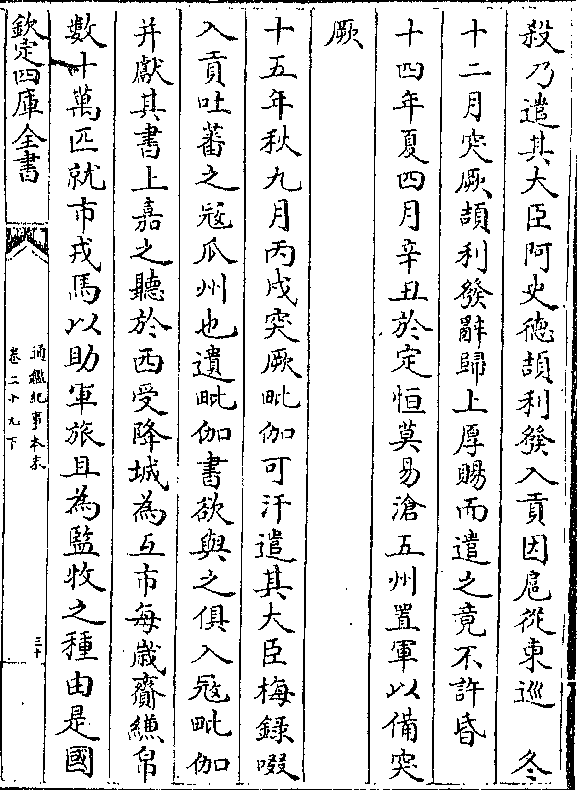 殺乃遣其大臣阿史德頡利發入貢因扈從東巡　冬
十二月突厥頡利發辭歸上厚賜而遣之竟不許昏
十四年夏四月辛丑於定恒莫易滄五州置軍以備突
厥
十五年秋九月丙戌突厥毗伽可汗遣其大臣梅錄啜
入貢吐蕃之寇瓜州也遺毗伽書欲與之俱入寇毗伽
并獻其書上嘉之聽於西受降城為互市每歲齎縑帛
數十萬匹就市戎馬以助軍旅且為監牧之種由是國
欽定四庫全書
通鑑紀事本末
卷二十九下
三十